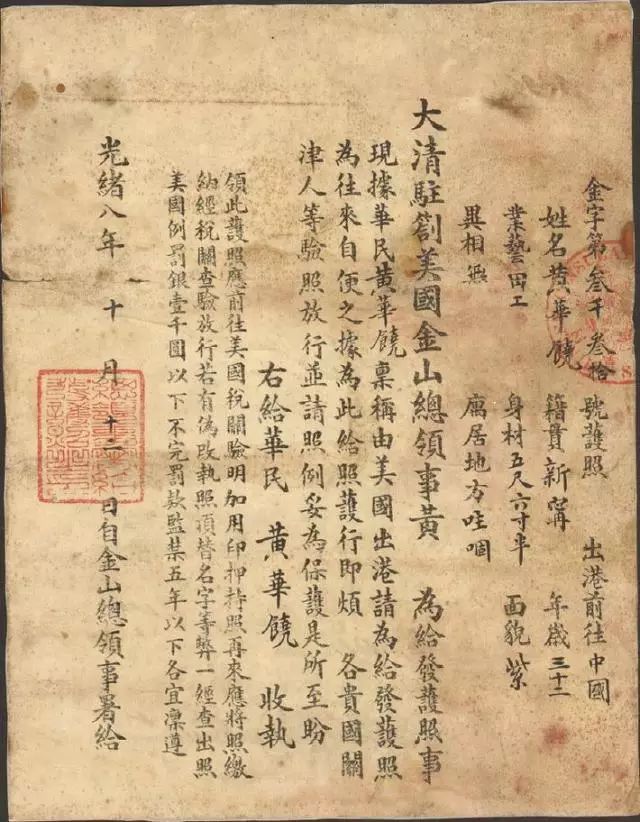 金字第叁千叁拾 號護照 出港前往中國
姓名黄華饒 籍貫新寧 年歲三十二
業藝田工 身材五尺六寸半 面貌紫
異相無 寓居地方哇啁
大清駐劄美國金山總領事黄 為給發護照事
現據華民黄華饒稟稱由美國出港請為給發護照
為往來自便之據為此給照護行即煩 各貴國關
津人等驗照放行並請照例妥為保護是所至盼
右給華民 黄華饒 收執
領此護照應前往美國稅關驗明加用印押持照再來應將照繳
納經稅關查驗放行若有偽改執照頂替名字等弊一經查出照
美國例罰銀壹千圓以下不完罰款監禁五年以下各宜凜遵
光緒八年 十 月 十二 日自金山總領事署給